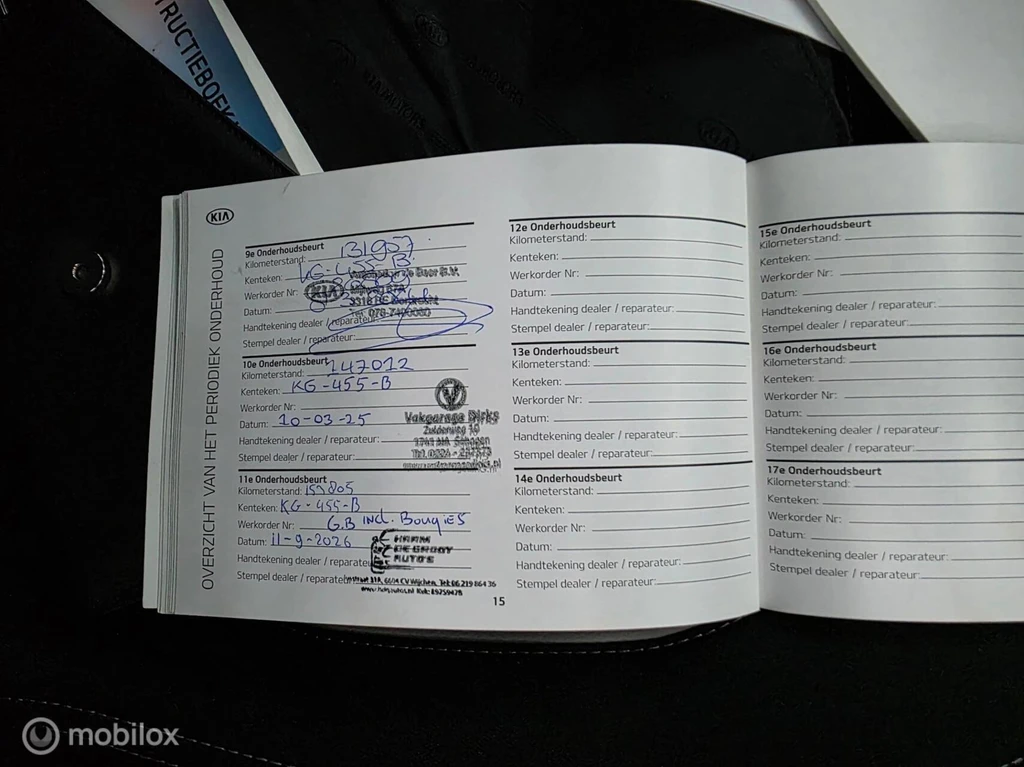 TRUCTIEBOEK
KIA
OVERZICHT VAN HET PERIODIEK ONDERHOUD
9e Onderhoudsbeurt
Kilometerstand: 131907
Kenteken: KG-455-B
Werkorder Nr:
Datum:
Handtekening dealer / reparateur:
Stempel dealer / reparateur:
KIA
Tel. 078-7490060
10e Onderhoudsbeurt
Kilometerstand: 147012
Kenteken: KG-455-B
Werkorder Nr:
Datum: 10-03-25
Handtekening dealer / reparateur:
Stempel dealer / reparateur:
Vakgarage Dirks
Zuiderweg 10
11e Onderhoudsbeurt
Kilometerstand:
Kenteken: KG-455-B
Werkorder Nr: G.B incl. Bougies
Datum: 11-9-2026
Handtekening dealer / reparateur:
Stempel dealer / reparateur:
HARM
DE GROOT
AUTO'S
31A, 6604 CV Wijchen, Tel: 06 219 864 36
15
12e Onderhoudsbeurt
Kilometerstand:
Kenteken:
Werkorder Nr:
Datum:
Handtekening dealer / reparateur:
Stempel dealer / reparateur:
13e Onderhoudsbeurt
Kilometerstand:
Kenteken:
Werkorder Nr:
Datum:
Handtekening dealer / reparateur:
Stempel dealer / reparateur:
14e Onderhoudsbeurt
Kilometerstand:
Kenteken:
Werkorder Nr:
Datum:
Handtekening dealer / reparateur:
Stempel dealer / reparateur:
15e Onderhoudsbeurt
Kilometerstand:
Kenteken:
Werkorder Nr:
Datum:
Handtekening dealer / reparateur:
Stempel dealer / reparateur:
16e Onderhoudsbeurt
Kilometerstand:
Kenteken:
Werkorder Nr:
Datum:
Handtekening dealer / reparateur:
Stempel dealer / reparateur:
17e Onderhoudsbeurt
Kilometerstand:
Kenteken:
Werkorder Nr:
Datum:
Handtekening dealer / reparateur:
Stempel dealer / reparateur:
mobilox